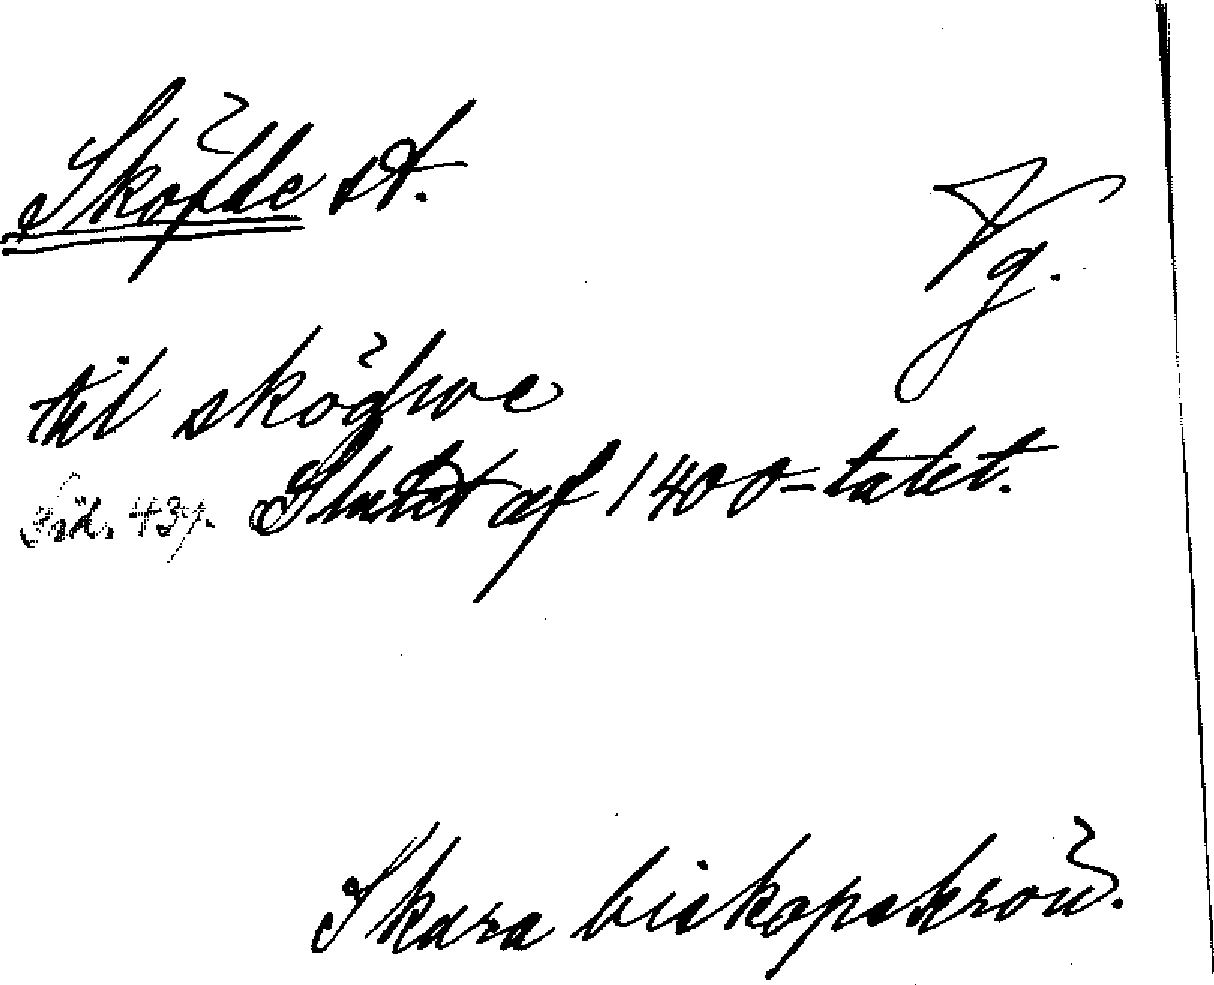 Sköfde st.
Vg.
til sködwe
Slutet af 1400-talet.
Skara biskopskrön.